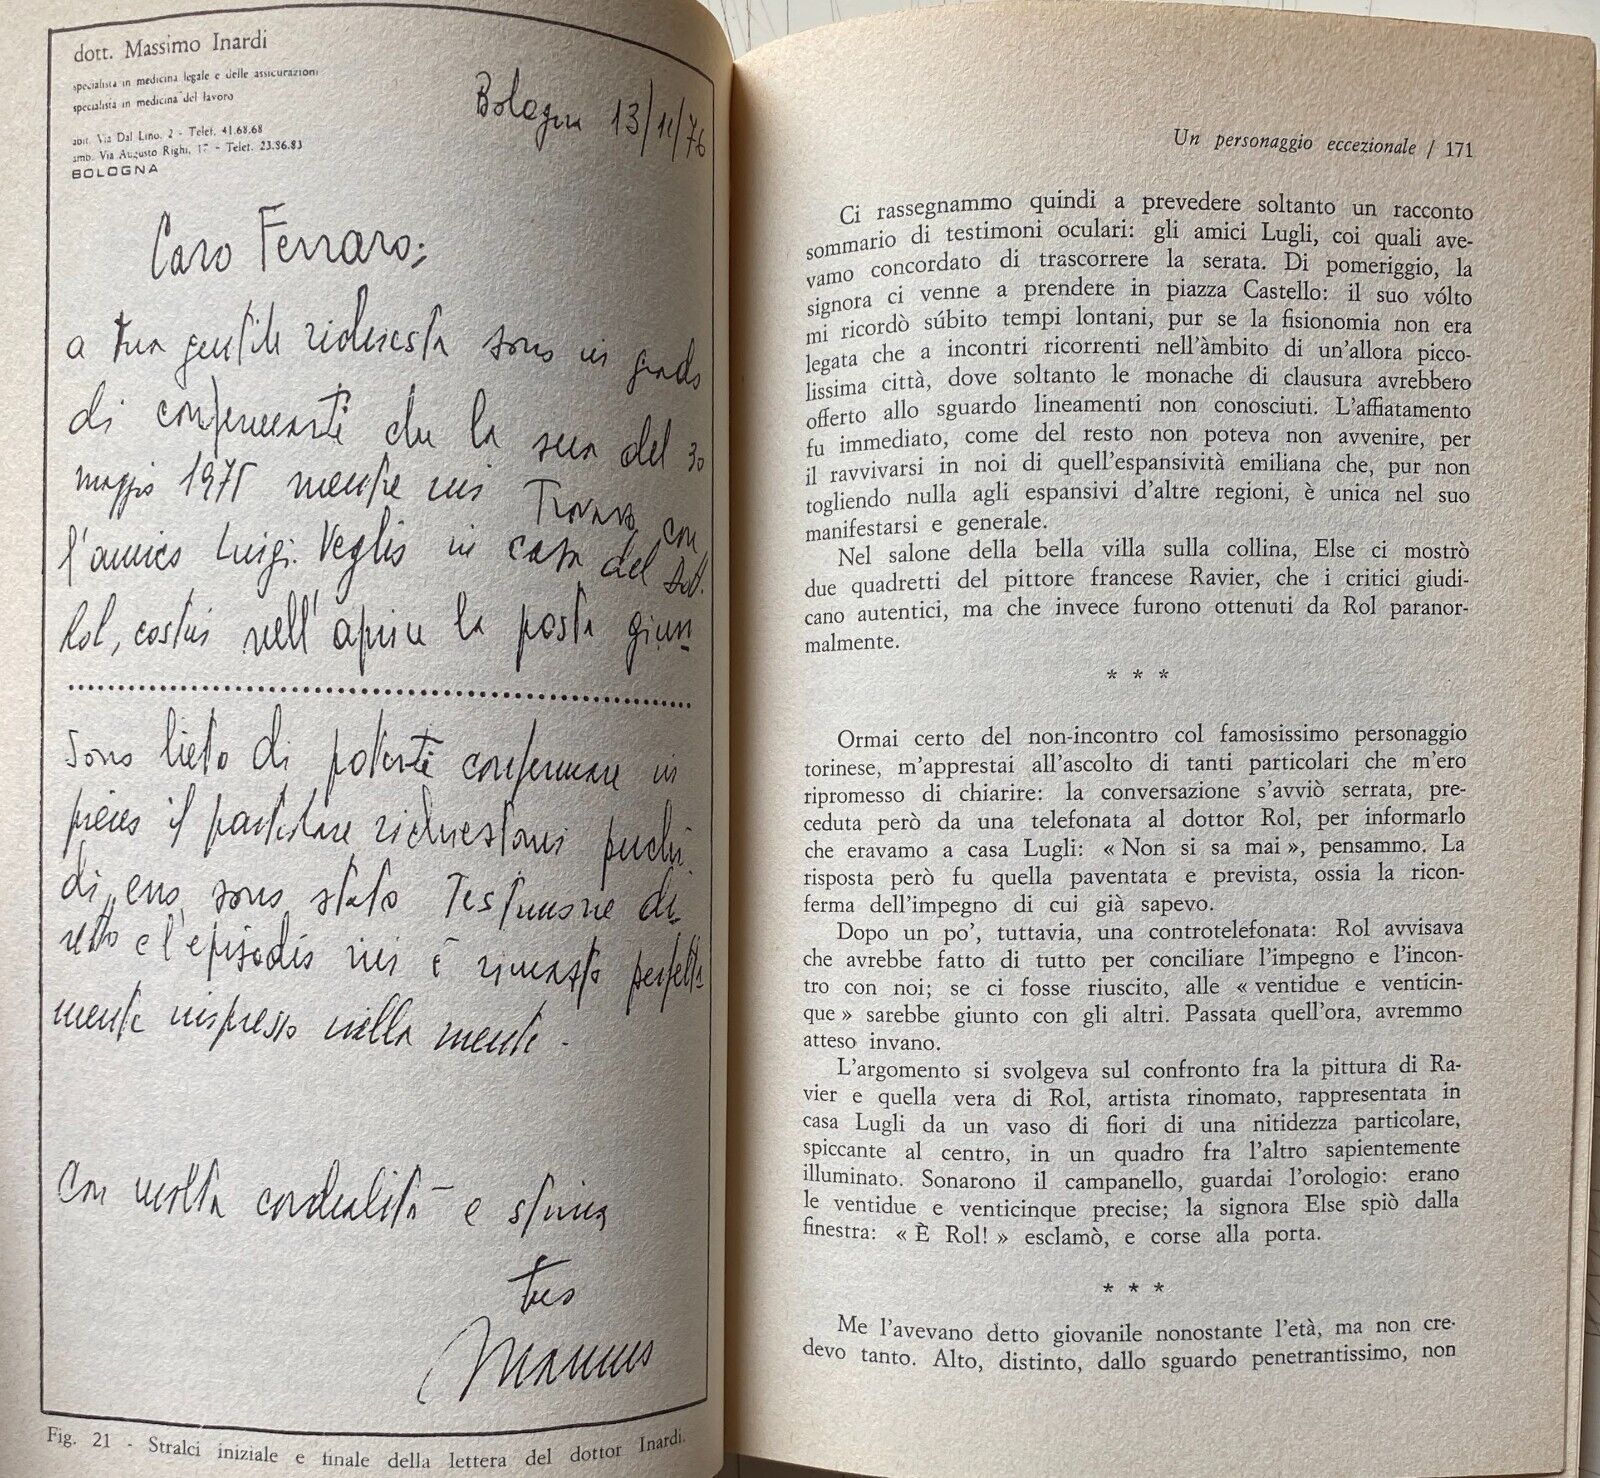 dott. Massimo Inardi
specialista in medicina legale e delle assicurazioni
specialista in medicina del lavoro
abit. Via Dal Lino, 2 - Telef. 41.68.68
amb. Via Augusto Righi, 17 - Telef. 23.86.83
BOLOGNA
Bologna 13/11/76
Caro Ferraro;
a tua gentile richiesta sono in grado
di confermarti che la sera del 30
maggio 1975 mentre mi trovavo con
l'amico Luigi Veglio in casa del dott.
Rol, costui nell'aprire la posta giun-
Sono lieto di poterti confermare in
pieno il particolare richiestomi perchè
di esso sono stato testimone di-
retto e l'episodio mi è rimasto perfetta-
mente impresso nella mente.
Con molta cordialità e stima
tuo
Massimo
Fig. 21 - Stralci iniziale e finale della lettera del dottor Inardi.
Un personaggio eccezionale / 171
Ci rassegnammo quindi a prevedere soltanto un racconto
sommario di testimoni oculari: gli amici Lugli, coi quali ave-
vamo concordato di trascorrere la serata. Di pomeriggio, la
signora ci venne a prendere in piazza Castello: il suo vólto
mi ricordò súbito tempi lontani, pur se la fisionomia non era
legata che a incontri ricorrenti nell'àmbito di un'allora picco-
lissima città, dove soltanto le monache di clausura avrebbero
offerto allo sguardo lineamenti non conosciuti. L'affiatamento
fu immediato, come del resto non poteva non avvenire, per
il ravvivarsi in noi di quell'espansività emiliana che, pur non
togliendo nulla agli espansivi d'altre regioni, è unica nel suo
manifestarsi e generale.
Nel salone della bella villa sulla collina, Else ci mostrò
due quadretti del pittore francese Ravier, che i critici giudi-
cano autentici, ma che invece furono ottenuti da Rol paranor-
malmente.
* * *
Ormai certo del non-incontro col famosissimo personaggio
torinese, m'apprestai all'ascolto di tanti particolari che m'ero
ripromesso di chiarire: la conversazione s'avviò serrata, pre-
ceduta però da una telefonata al dottor Rol, per informarlo
che eravamo a casa Lugli: « Non si sa mai », pensammo. La
risposta però fu quella paventata e prevista, ossia la ricon-
ferma dell'impegno di cui già sapevo.
Dopo un po', tuttavia, una controtelefonata: Rol avvisava
che avrebbe fatto di tutto per conciliare l'impegno e l'incon-
tro con noi; se ci fosse riuscito, alle « ventidue e venticin-
que » sarebbe giunto con gli altri. Passata quell'ora, avremmo
atteso invano.
L'argomento si svolgeva sul confronto fra la pittura di Ra-
vier e quella vera di Rol, artista rinomato, rappresentata in
casa Lugli da un vaso di fiori di una nitidezza particolare,
spiccante al centro, in un quadro fra l'altro sapientemente
illuminato. Sonarono il campanello, guardai l'orologio: erano
le ventidue e venticinque precise; la signora Else spiò dalla
finestra: « È Rol! » esclamò, e corse alla porta.
* * *
Me l'avevano detto giovanile nonostante l'età, ma non cre-
devo tanto. Alto, distinto, dallo sguardo penetrantissimo, non